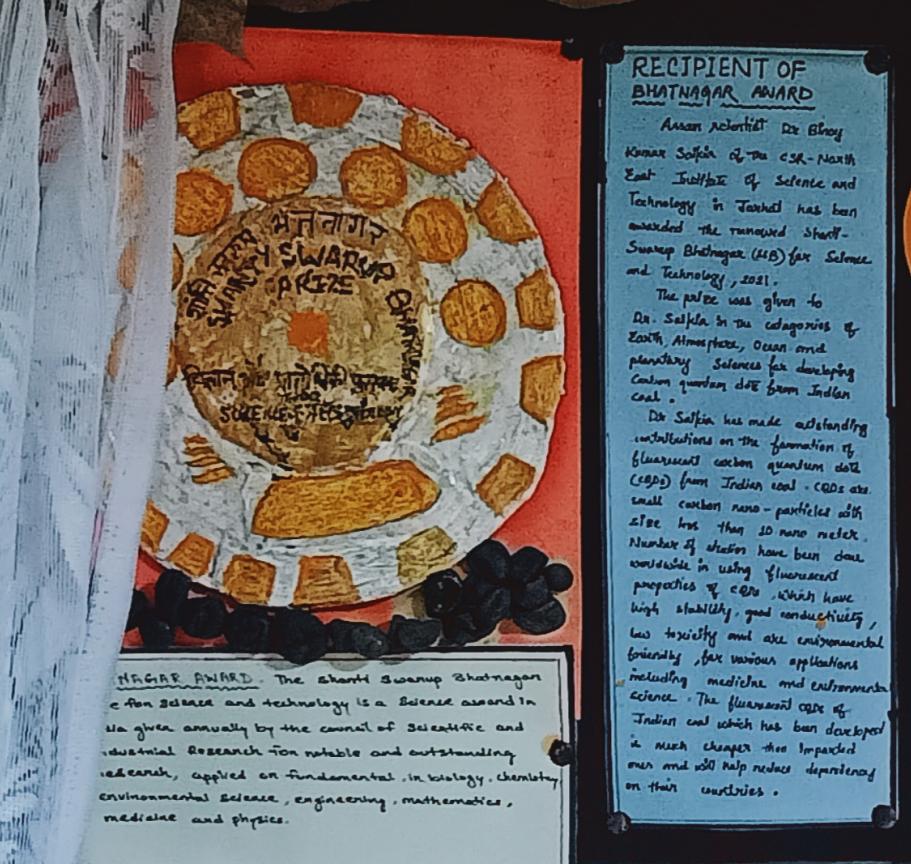 शांति स्वरूप भटनागर
SHANTI SWARUP BHATNAGAR
PRIZE
विज्ञान एवं प्रौद्योगिकी पुरस्कार
SCIENCE & TECHNOLOGY
NAGAR AWARD. The Shanti Swarup Bhatnagar
e for science and technology is a Science award in
ia given annually by the council of Scientific and
dustrial Research for notable and outstanding
esearch, applied or fundamental, in biology, chemistry,
environmental science, engineering, mathematics,
medicine and physics.
RECIPIENT OF
BHATNAGAR AWARD
Assam scientist Dr Binoy
Kumar Saikia of the CSR-North
East Institute of Science and
Technology in Jorhat has been
awarded the renowed Shanti-
Swarup Bhatnagar (SSB) for Science
and Technology, 2021.
The prize was given to
Dr. Saikia in the catagories of
Earth, Atmosphere, Ocean and
planetary Sciences for developing
Carbon quantum dots from Indian
coal.
Dr Saikia has made outstanding
contributions on the formation of
fluorescent carbon quantum dots
(CQDs) from Indian coal. CQDs are
small carbon nano-particles with
size less than 10 nano meter.
Number of studies have been done
worldwide in using fluorescent
properties of CQDs, which have
high stability, good conductivity,
low toxicity and are environmental
friendly, for various applications
including medicine and environmental
science. The fluorescent CQDs of
Indian coal which has been developed
is much cheaper than imported
ones and will help reduce dependency
on their countries.